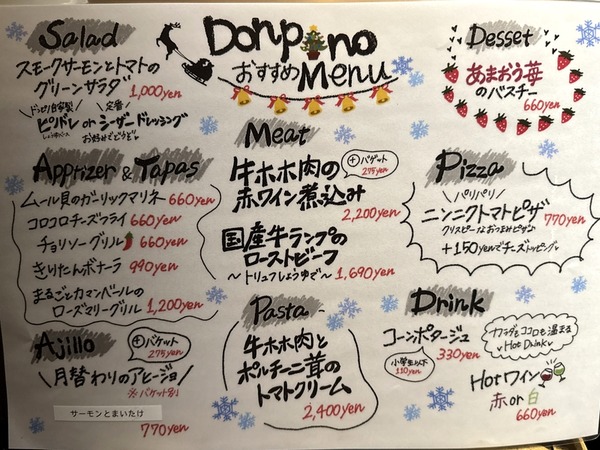 Donpino
おすすめMenu
Salad
スモークサーモンとトマトの
グリーンサラダ 1,000yen
＼ドンピノ自家製／ ＼定番／
ピンドレ or シーザードレッシング
お好みでどうぞ
Apptizer & Tapas
ムール貝のガーリックマリネ 660yen
コロコロチーズフライ 660yen
チョリソーグリル 660yen
きりたんボナーラ 990yen
まるごとカマンベールの
ローズマリーグリル 1,200yen
Ajillo
+バゲット
275yen
＼月替わりのアヒージョ／
※バゲット別
サーモンとまいたけ
770yen
Meat
牛ホホ肉の
赤ワイン煮込み
+バゲット
275yen
2,200yen
国産牛ランプの
ローストビーフ
〜トリュフしょうゆで〜 1,690yen
Pasta
牛ホホ肉と
ポルチーニ茸の
トマトクリーム
2,400yen
Desset
あまおう苺
のバスチー
660yen
Pizza
＼パリパリ／
ニンニクトマトピザ 770yen
クリスピーなおつまみピザ♪
+150yenでチーズトッピング
Drink
コーンポタージュ
330yen
小学生以下
110yen
カラダもココロも温まる
Hot Drink
Hotワイン
赤 or 白
660yen